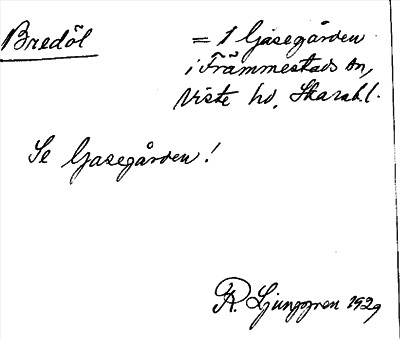 Bredöl = 1 Gåsegården
i Främmestads sn,
Viste hd, Skarab.l.
Se Gåsegården!
R. Ljunggren 1929